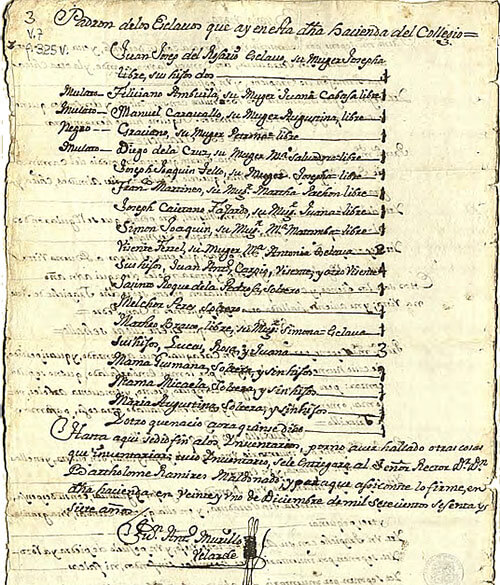 3
V.7
f.325v.
Padron de los Esclavos que ay en esta dha hacienda del Collegio=
Juan Joseph del Rosario Esclavo, su Muger Josepha
libre, sus hijos dos
Mulato Feliciano Ambuila, su Muger Juana Cabesa libre
Mulato Manuel Caravallo, su Muger Augustina, libre 1
Negro Graciano, su Muger libre 1
Mulato Diego de la Cruz, su Muger Ma. libre 1
Joseph Joachin Tello, su Muger Josepha libre 1
Juan Martines, su Mugr. Martha Pachon libre 1
Joseph Caietano Faxardo, su Mugr. Juana libre 1
Simon Joaquin, su Mugr. Ma. libre 1
Vicente su Muger Ma. Antonia Esclava 2
Sus hijos, Juan Anto. Vicente, y otro Vicente 4
Jasinto Roque de la Soltero 1
Melchor Soltero 1
Matheo Bravo, libre, su Mugr. Simona Esclava 1
Sus hijos, Lucas, Rosa, y Juana 3
Mama Soltera, y sin hijos
Mama Micaela, Soltera, y sin hijos
Maria Augustina, Soltera, y sin hijos
Y otro que nacio aora quinse dias
Hasta aqui se dio fin a los Ynventarios, por no aver hallado otras cosas
que inventariar; cuio Ynventario, se le entrega al Señor Rector Dr. Dn.
Bartholome Ramires Maldonado, y para que assi conste lo firme, en
dha hacienda, en Veinte y Uno de Diciembre de mil setecientos sesenta y
siete años
Jn. Anto. Murillo
Velarde